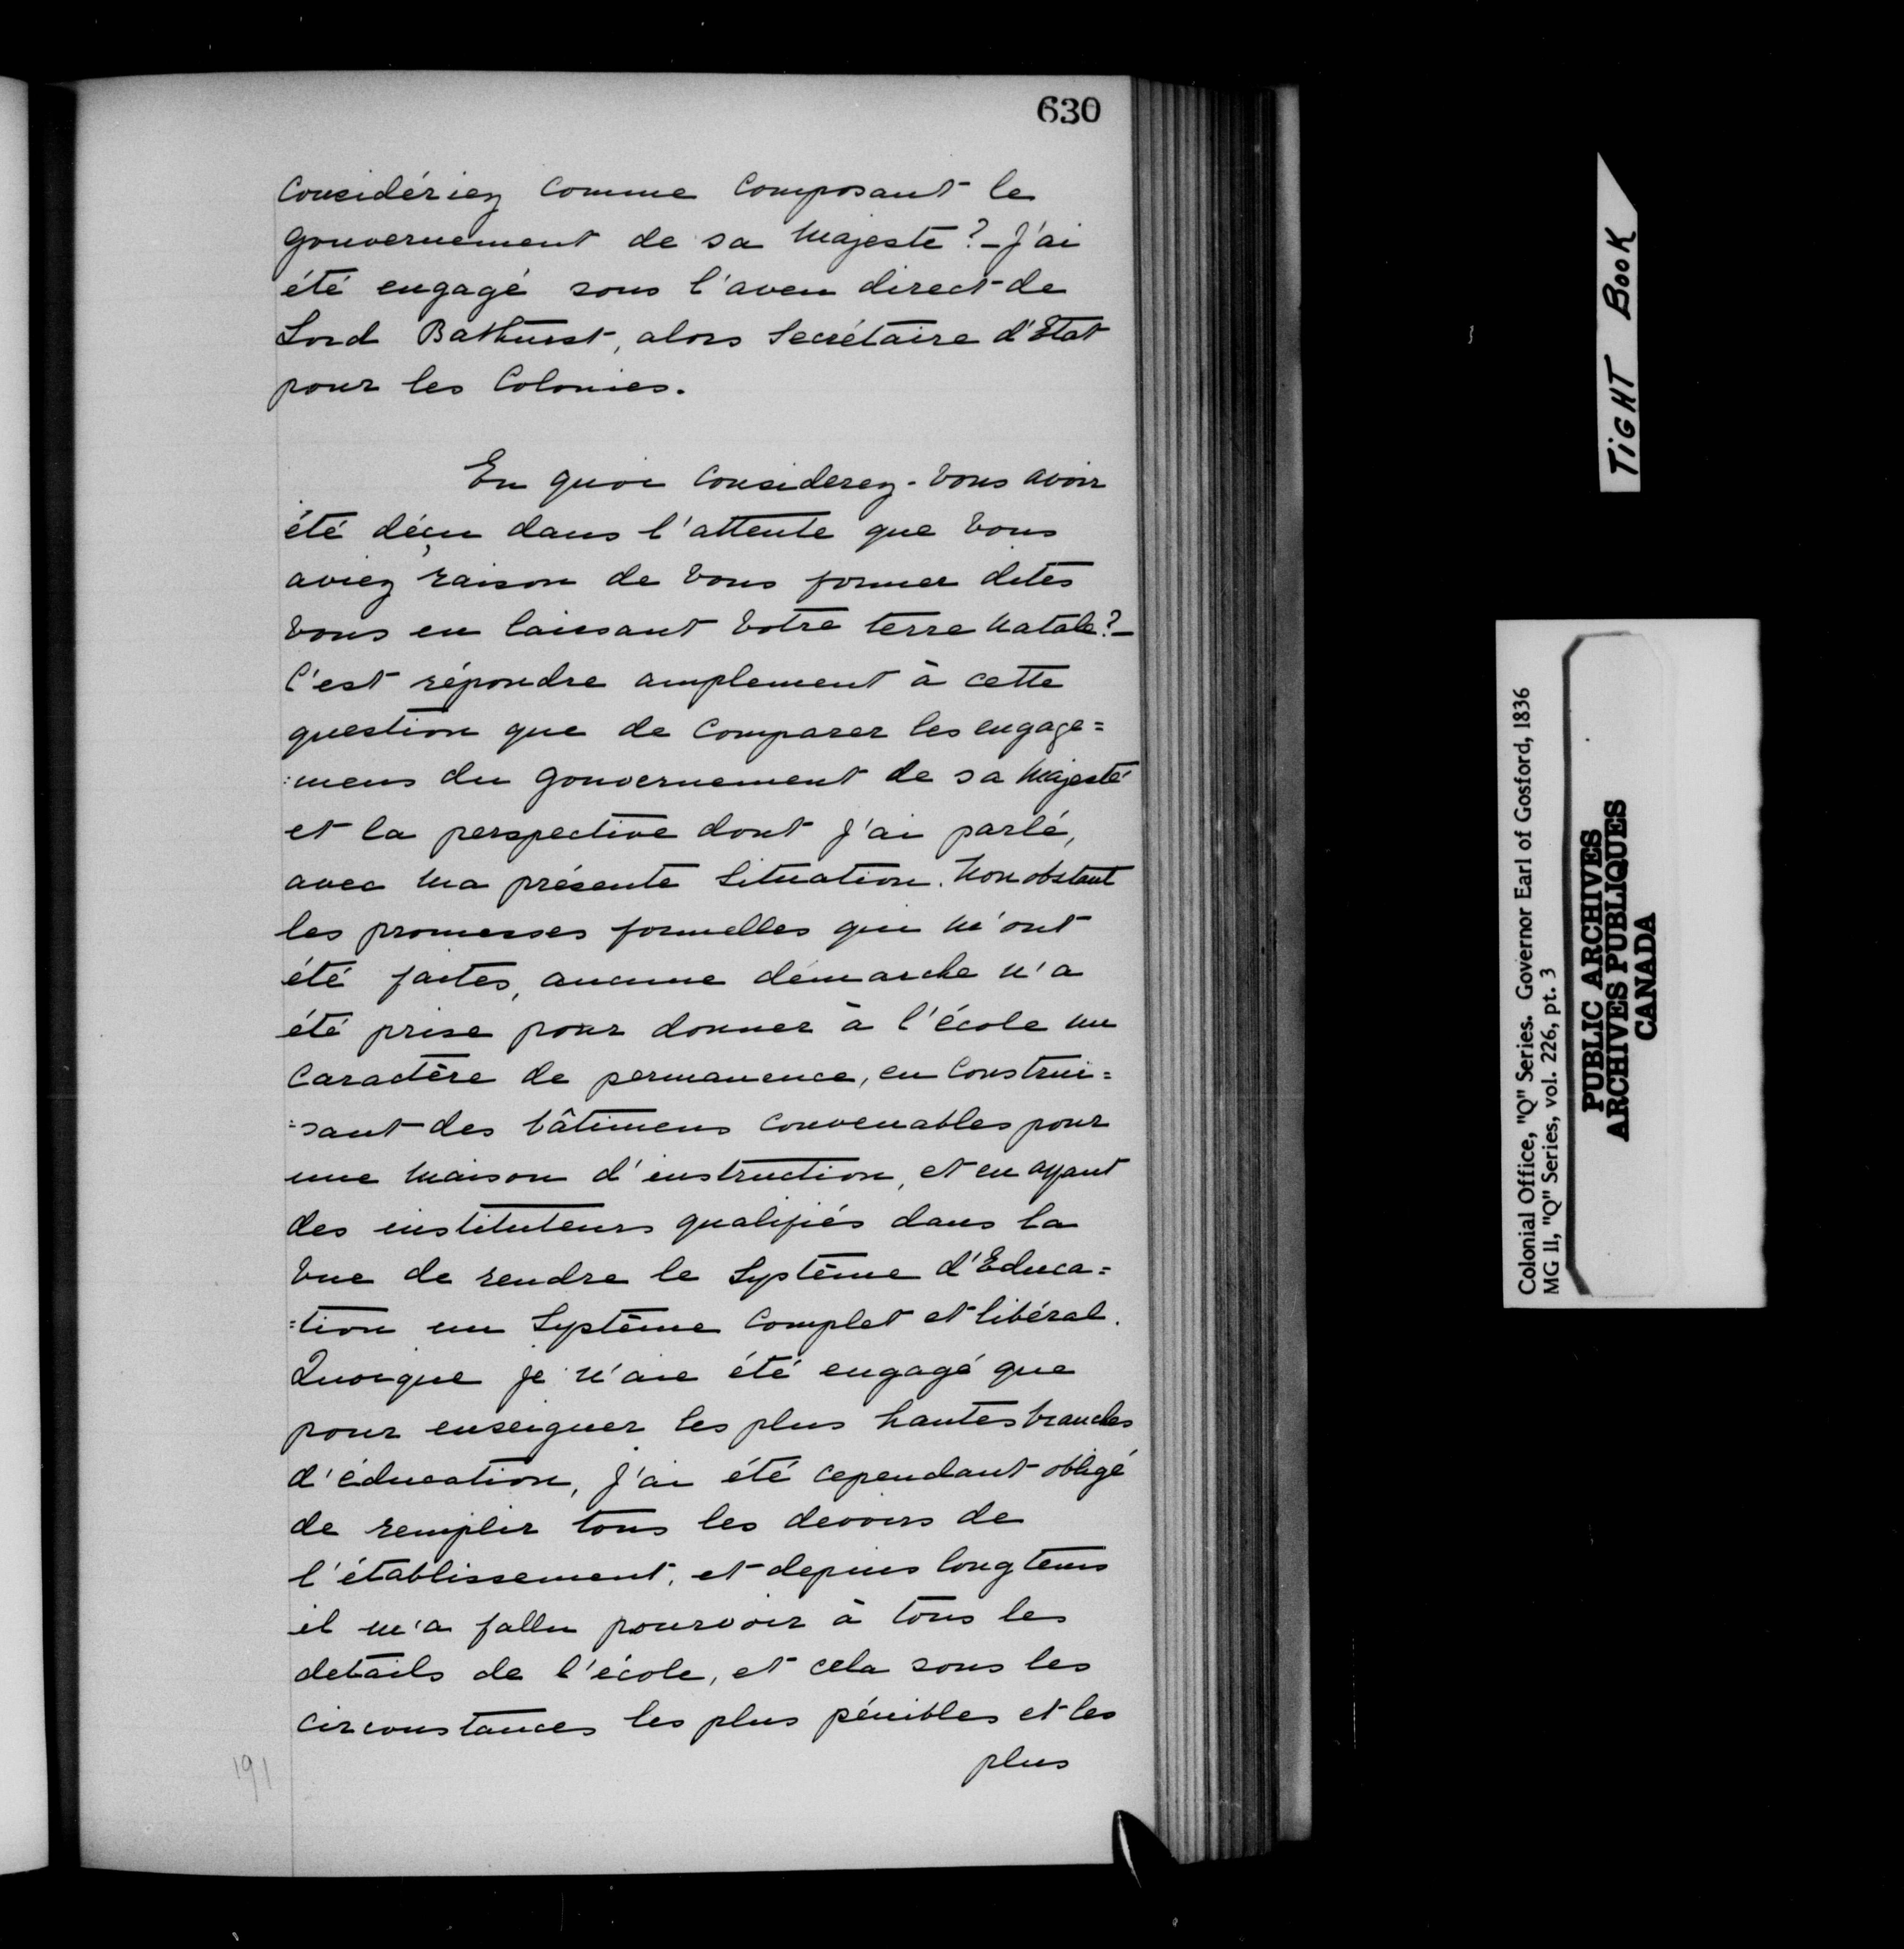 630
Considériez Comme Composant le
gouvernement de sa Majesté?_ J'ai
été engagé sous l'aveu direct de
Lord Bathurst, alors Secrétaire d'Etat
pour les Colonies.
En quoi Considerez-vous avoir
été déçu dans l'attente que vous
aviez raison de vous former dites
vous en laissant votre terre natale?_
C'est répondre amplement à cette
question que de Comparer les engage=
:mens du gouvernement de sa Majesté
et la perspective dont j'ai parlé,
avec ma présente Situation. Nonobstant
les promesses formelles qui m'ont
été faites, aucune démarche n'a
été prise pour donner à l'école un
Caractère de permanence, en Construi=
=sant des bâtimens Convenables pour
une maison d'instruction, et en ayant
des instituteurs qualifiés dans la
vue de rendre le Système d'Educa=
=tion un Système Complet et libéral.
Quoique je n'aie été engagé que
pour enseigner les plus hautes branches
d'éducation, j'ai été cependant obligé
de remplir tous les devoirs de
l'établissement, et depuis longtems
il m'a fallu pourvoir à tous les
details de l'école, et cela sous les
Circonstances les plus pénibles et les
plus
191
TIGHT BOOK
Colonial Office, "Q" Series. Governor Earl of Gosford, 1836
MG 11, "Q" Series, vol. 226, pt. 3
PUBLIC ARCHIVES
ARCHIVES PUBLIQUES
CANADA